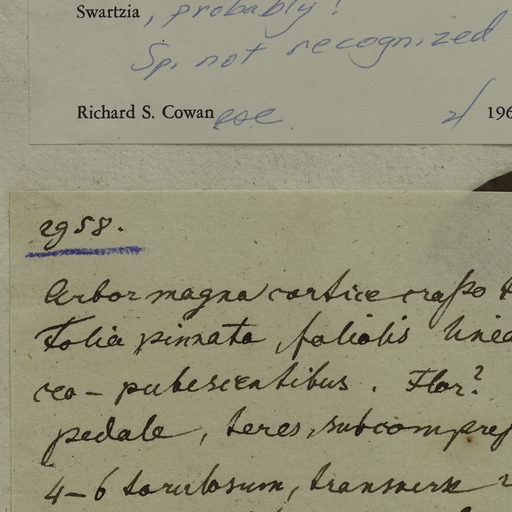 Swartzia, probably!
Sp. not recognized
Richard S. Cowan 196
2958.
Arbor magna cortice crasso
Folia pinnata, foliolis
ceo-pubescentibus. Flor?
pedale, teres, subcompres
4-6 torulosum, transverse